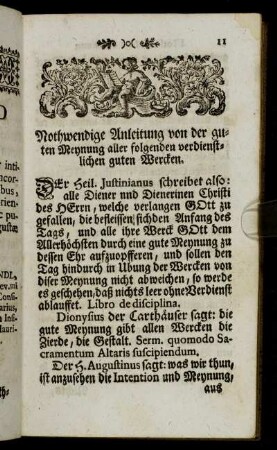 11
Nothwendige Anleitung von der gu-
ten Meynung aller folgenden verdienst-
lichen guten Wercken.
DEr Heil. Justinianus schreibet also:
alle Diener und Dienerinen Christi
des HErrn, welche verlangen GOtt zu
gefallen, die befleissen sich den Anfang des
Tags, und alle ihre Werck GOtt dem
Allerhöchsten durch eine gute Meynung zu
dessen Ehr aufzuopfferen, und sollen den
Tag hindurch in Ubung der Wercken von
diser Meynung nicht abweichen, so werde
es geschehen, daß nichts leer ohne Verdienst
ablauffet. Libro de disciplina.
Dionysius der Carthäuser sagt: die
gute Meynung gibt allen Wercken die
Zierde, die Gestalt. Serm. quomodo Sa-
cramentum Altaris suscipiendum.
Der H. Augustinus sagt: was wir thun,
ist anzusehen die Intention und Meynung,
aus